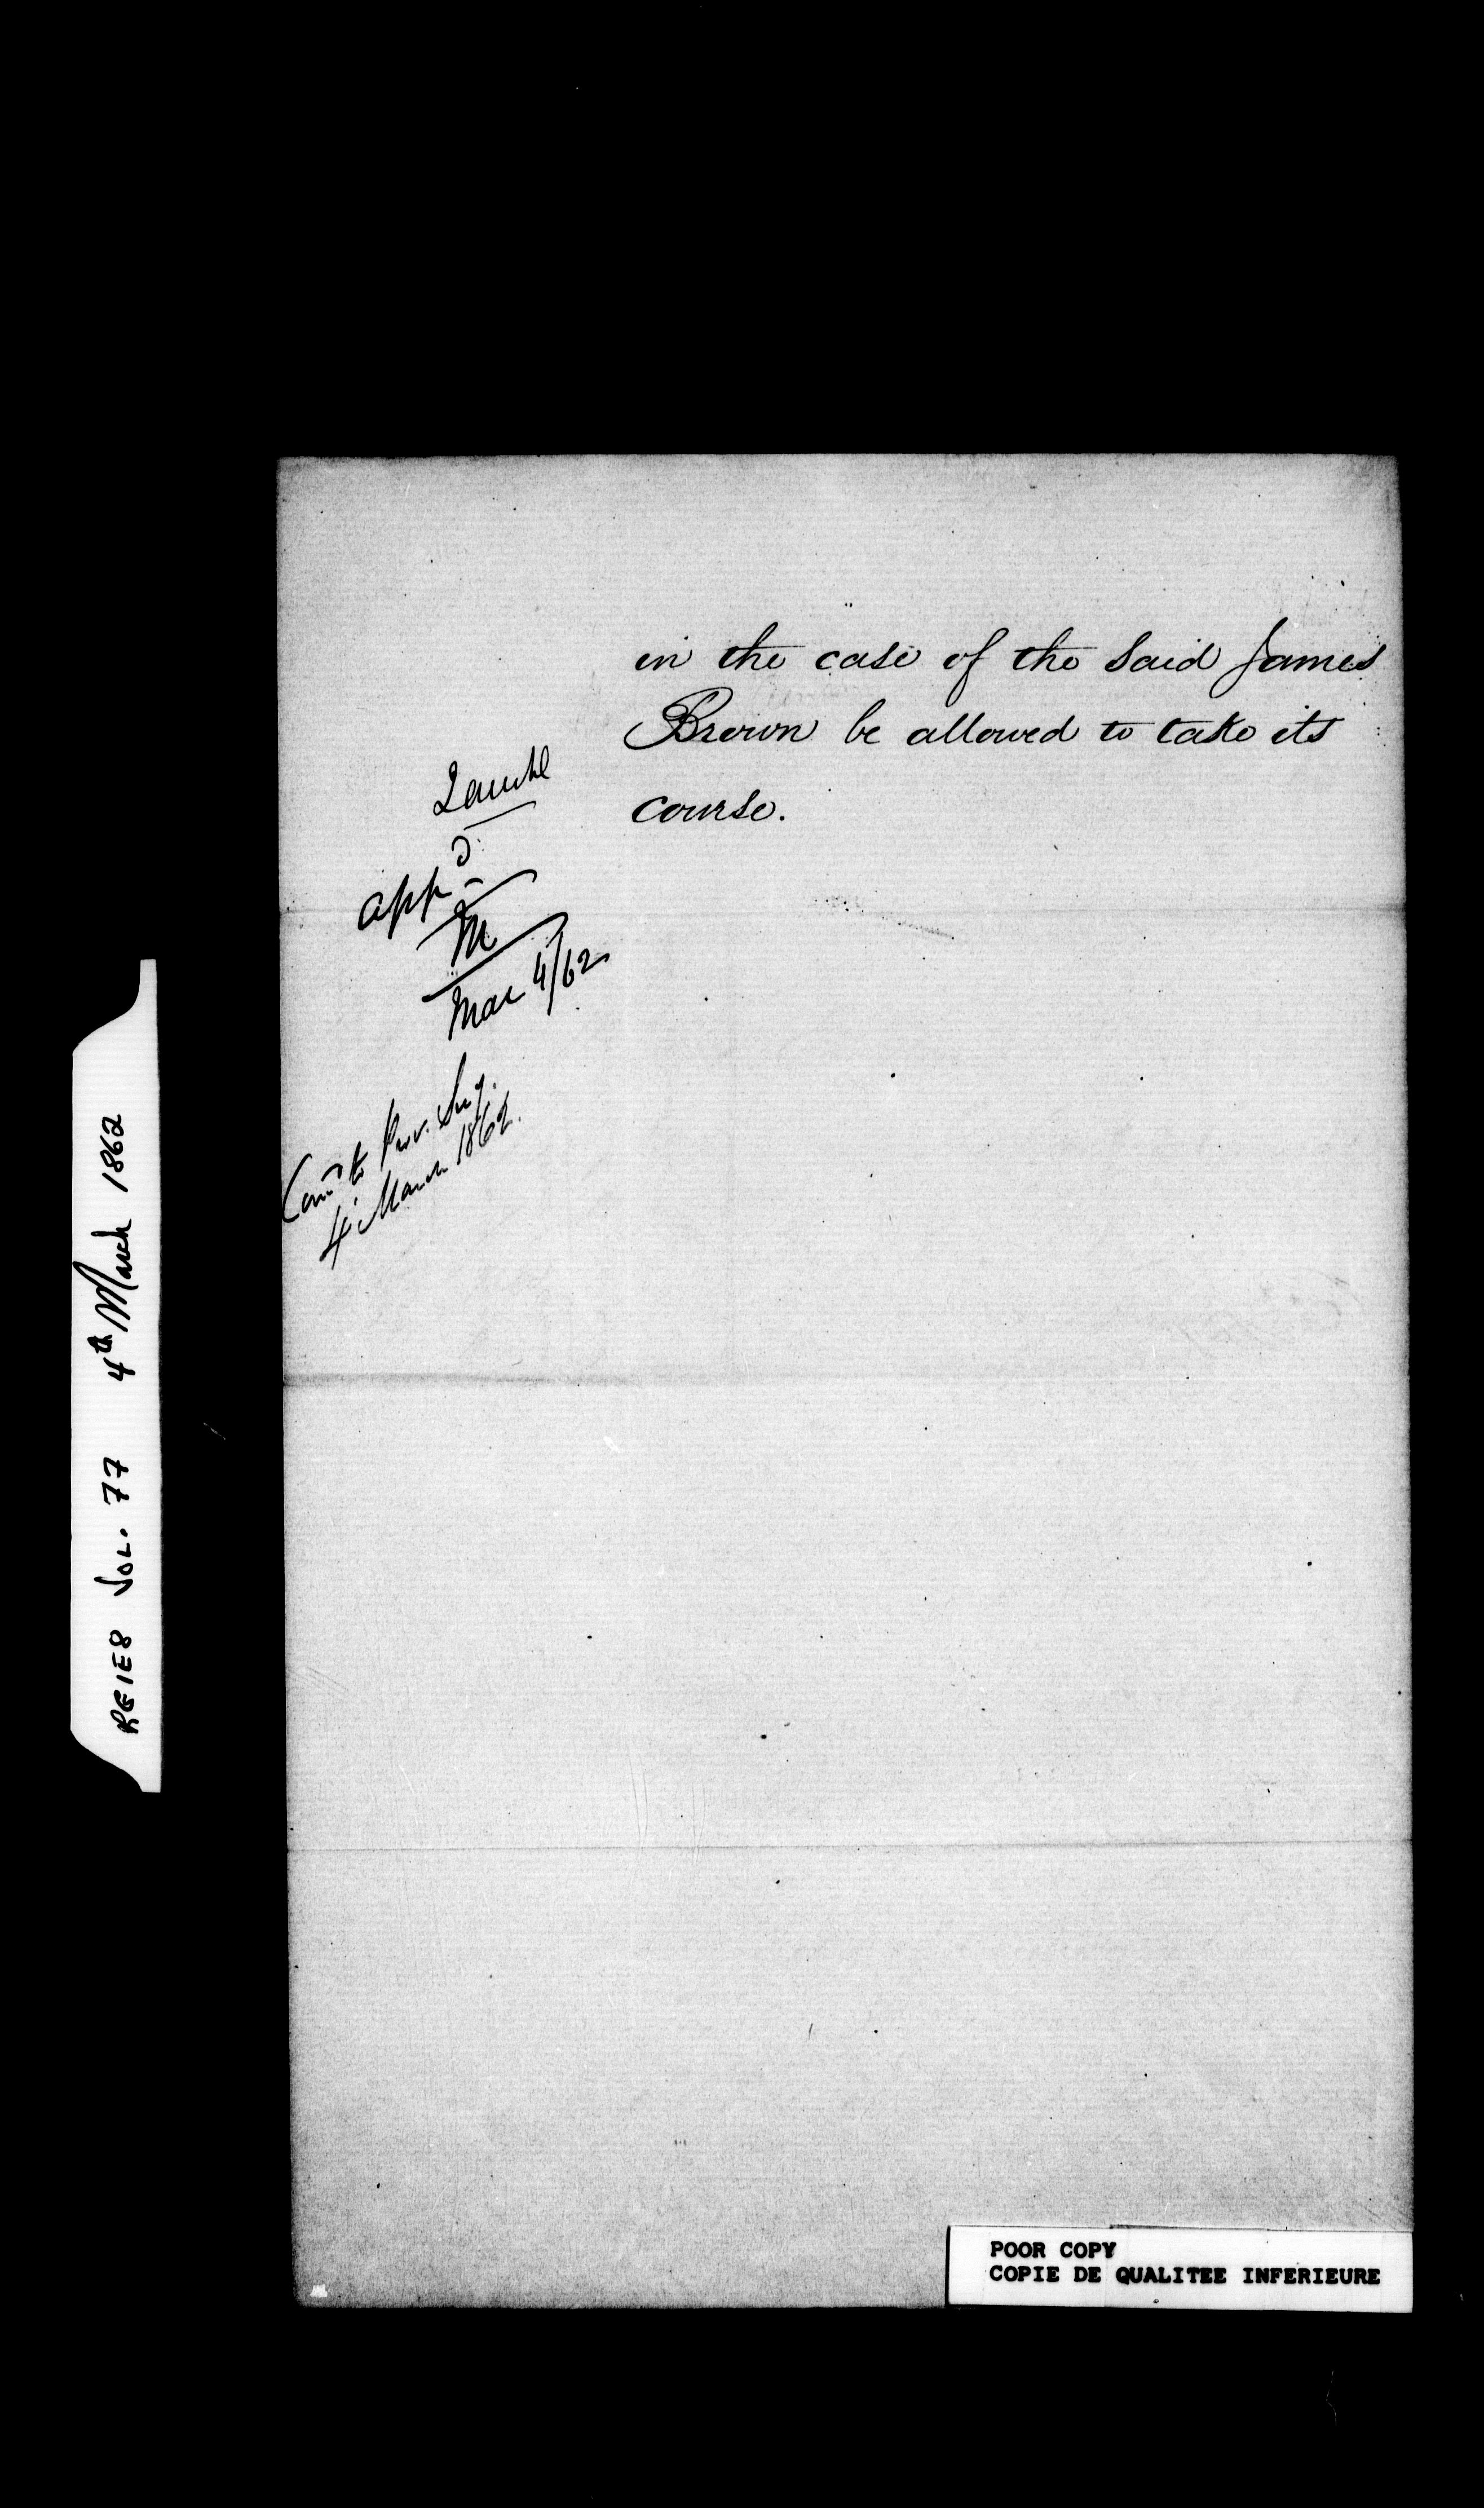 in the case of the said James
Brown be allowed to take its
course.
appd
M
Mar 4/62
to Prov. Secy.
4 March 1862.
RG1E8 VOL. 77 4th March 1862
POOR COPY
COPIE DE QUALITEE INFERIEURE